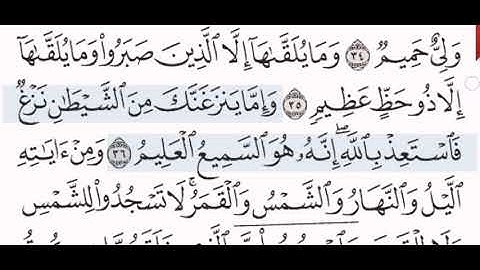 وَلِيٌّ حَمِيمٌ ٣٤ وَمَا يُلَقَّىٰهَآ إِلَّا ٱلَّذِينَ صَبَرُوا۟ وَمَا يُلَقَّىٰهَآ
إِلَّا ذُو حَظٍّ عَظِيمٍ ٣٥ وَإِمَّا يَنزَغَنَّكَ مِنَ ٱلشَّيْطَٰنِ نَزْغٌ
فَٱسْتَعِذْ بِٱللَّهِ ۖ إِنَّهُۥ هُوَ ٱلسَّمِيعُ ٱلْعَلِيمُ ٣٦ وَمِنْ ءَايَٰتِهِ
ٱلَّيْلُ وَٱلنَّهَارُ وَٱلشَّمْسُ وَٱلْقَمَرُ ۚ لَا تَسْجُدُوا۟ لِلشَّمْسِ